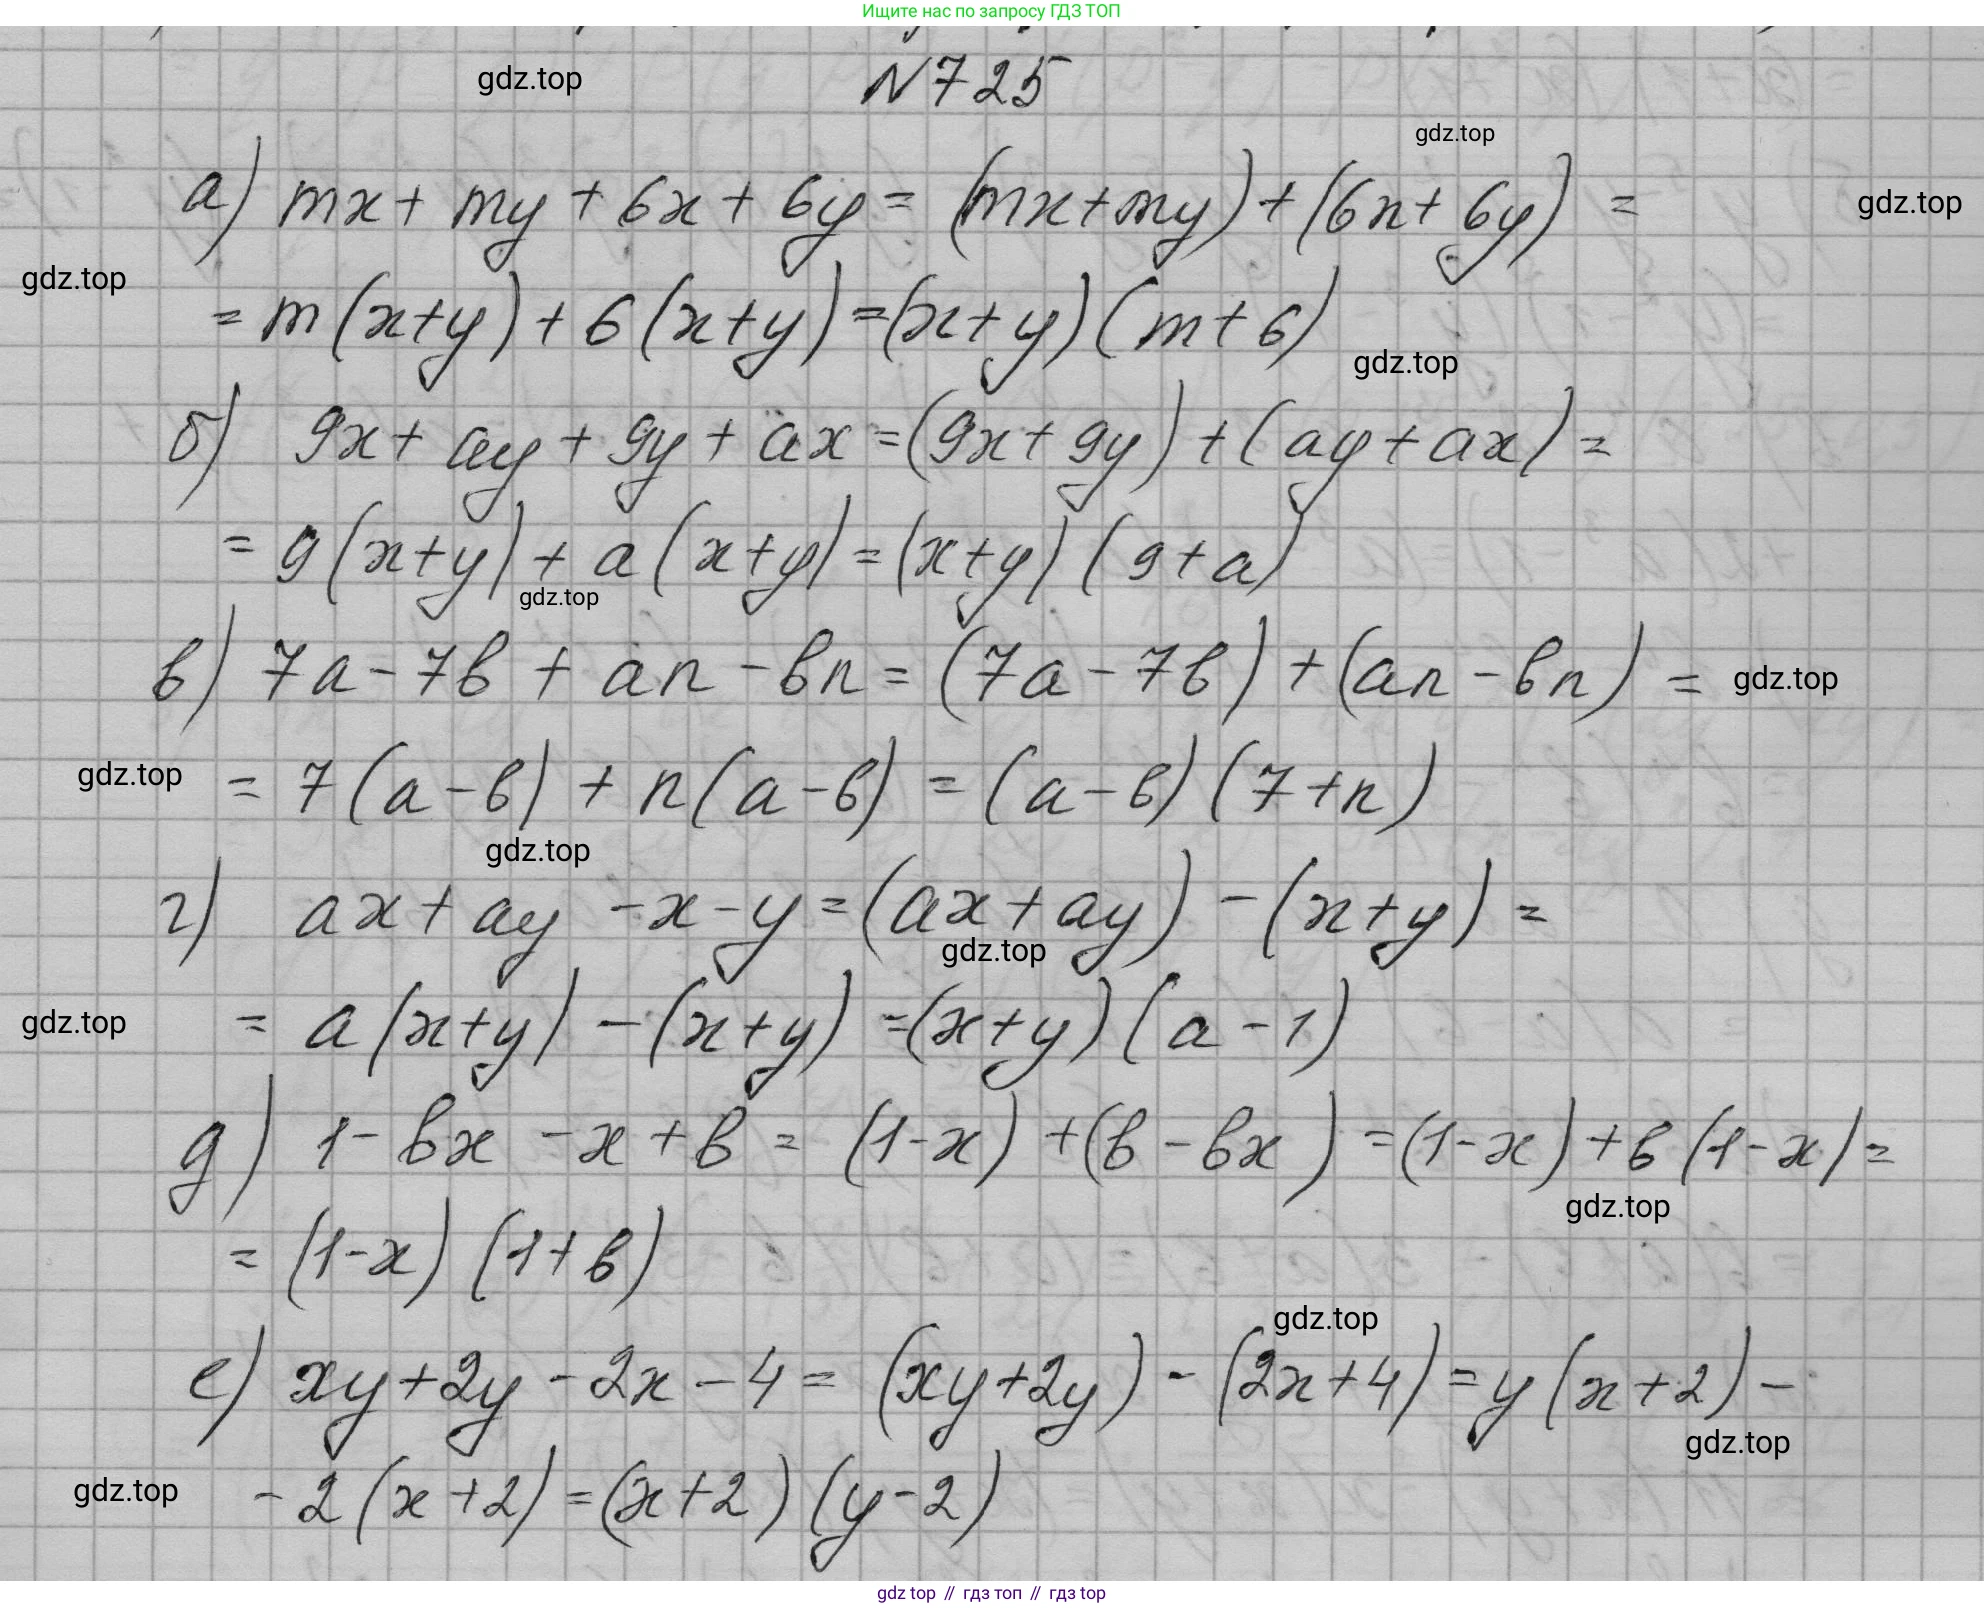 Ищите нас по запросу ГДЗ ТОП
gdz.top
N725
gdz.top
а) mx + my + 6x + 6y = (mx+my) + (6x + 6y) =
gdz.top
gdz.top
= m(x+y) + 6(x+y) = (x+y)(m+6)
gdz.top
б) 9x + ay + 9y + ax = (9x + 9y) + (ay + ax) =
= 9(x+y) + a(x+y) = (x+y)(9+a)
gdz.top
в) 7a - 7b + an - bn = (7a - 7b) + (an - bn) =
gdz.top
gdz.top
= 7(a-b) + n(a-b) = (a-b)(7+n)
gdz.top
г) ax + ay - x - y = (ax + ay) - (x+y) =
gdz.top
gdz.top
= a(x+y) - (x+y) = (x+y)(a-1)
д) 1 - bx - x + b = (1-x) + (b - bx) = (1-x) + b(1-x) =
gdz.top
= (1-x)(1+b)
gdz.top
е) xy + 2y - 2x - 4 = (xy+2y) - (2x+4) = y(x+2) -
gdz.top
gdz.top
- 2(x+2) = (x+2)(y-2)
gdz top // гдз топ // гдз top